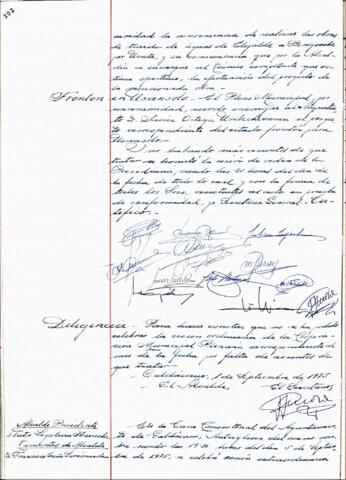 nimidad la conveniencia de realizar las obras
de traida de aguas de Elejalde a
por Urreta, y en consecuencia que por la Alcal-
día se encargue al Técnico competente que es-
time oportuno, la efectuación del proyecto de
la mencionada obra.-
Frontón en Usansolo - El Pleno Municipal, por
unanimidad, acordó encargar al Arquitecto
D. Javier Ortega el proyec-
to correspondiente del citado frontón para
Usansolo.-
Y no habiendo más asuntos de que
tratar se levantó la sesión de orden de la
Presidencia, siendo las 21 horas del día de
la fecha, de todo lo cual y con la firma de
todos los Sres. asistentes al acto en prueba
de conformidad, yo Secretario General. Cer-
tifico.-
Diligencia - Para hacer constar que no se ha podido
celebrar la sesión ordinaria de la Corpora-
ción Municipal Plenaria correspondiente al
mes de la fecha por falta de asuntos de
que tratar.-
Galdácano, 1 de Septiembre de 1975
El Alcalde, El Secretario
Alcalde Presidente
D.
Tenientes de Alcalde
D. Francisco
En la Casa Consistorial del Ayuntamien-
to de Galdácano, Anteiglesia del mismo nom-
bre siendo las 19.30 horas del día 5 de Septiem-
bre de 1975, se celebró sesión extraordinaria